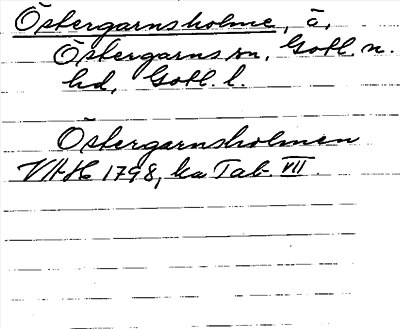 Östergarnsholme, ö,
Östergarns sn, Gotl. n.
hd, Gotl. l.
Östergarnsholmen
VHH 1798, ka Tab VII.